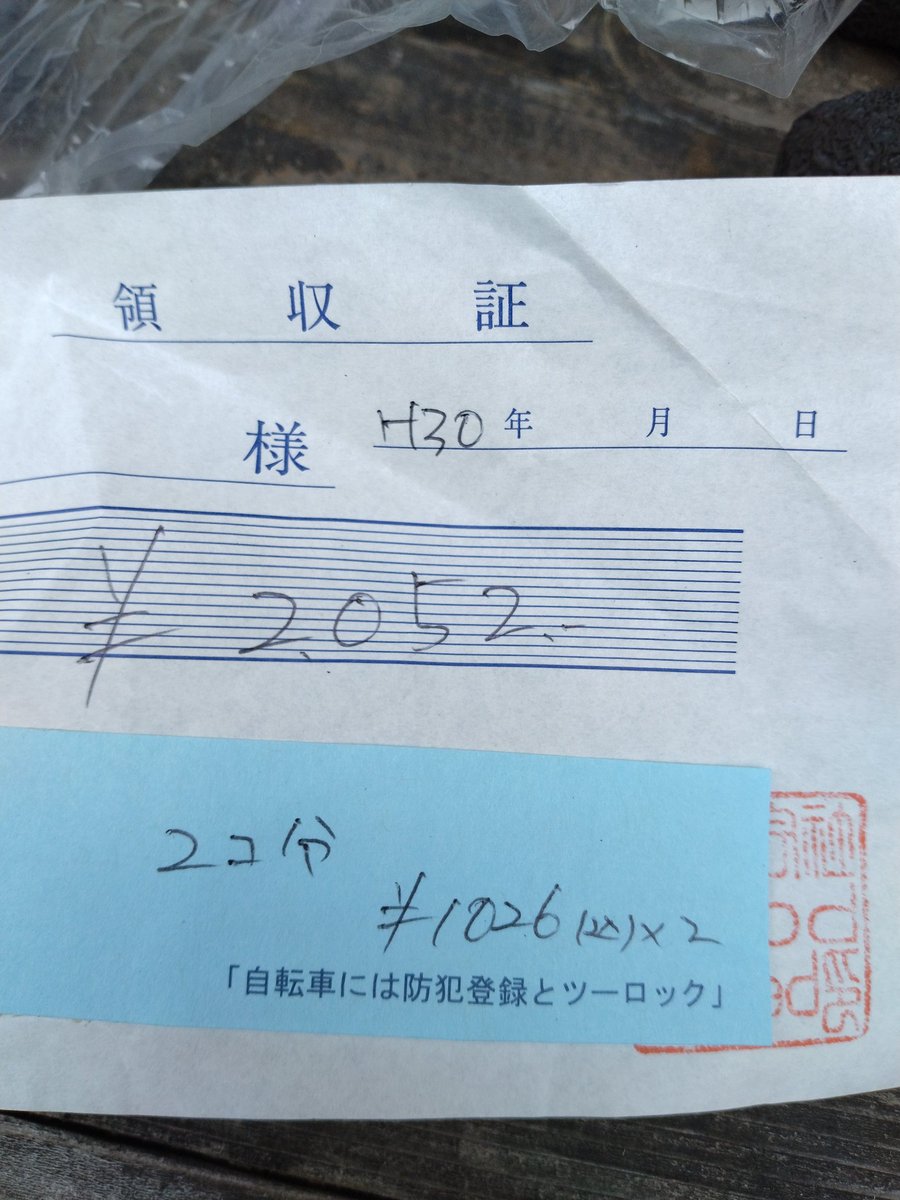 領収証
様 H30年 月 日
¥2,052.-
2コ分
¥1026(込)×2
「自転車には防犯登録とツーロック」